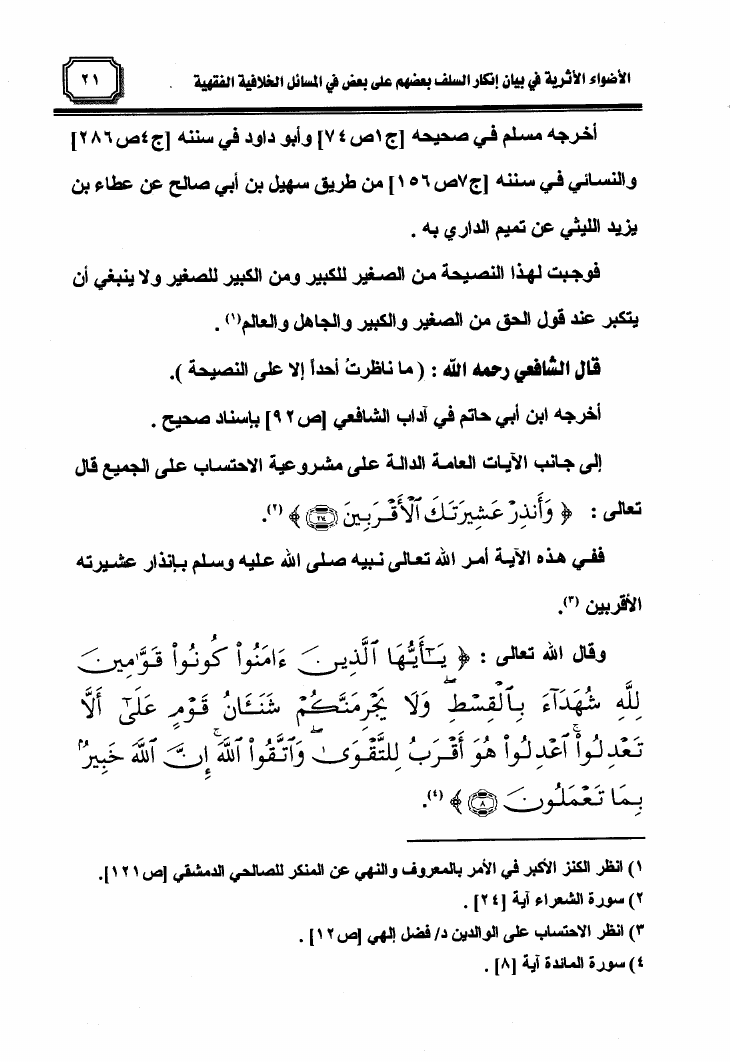 الأضواء الأثرية في بيان إنكار السلف بعضهم على بعض في المسائل الخلافية الفقهية .
٢١
أخرجه مسلم في صحيحه [ج١ص٧٤] وأبو داود في سننه [ج٤ص٢٨٦]
والنسائي في سننه [ج٧ص١٥٦] من طريق سهيل بن أبي صالح عن عطاء بن
يزيد الليثي عن تميم الداري به .
فوجبت لهذا النصيحة من الصغير للكبير ومن الكبير للصغير ولا ينبغي أن
يتكبر عند قول الحق من الصغير والكبير والجاهل والعالم(١) .
قال الشافعي رحمه الله : ( ما ناظرتُ أحداً إلا على النصيحة ).
أخرجه ابن أبي حاتم في آداب الشافعي [ص٩٢] بإسناد صحيح .
إلى جانب الآيات العامة الدالة على مشروعية الاحتساب على الجميع قال
تعالى : ﴿ وَأَنذِرْ عَشِيرَتَكَ ٱلْأَقْرَبِينَ ٢٤ ﴾ (٢).
ففي هذه الآية أمر الله تعالى نبيه صلى الله عليه وسلم بإنذار عشيرته
الأقربين (٣).
وقال الله تعالى : ﴿ يَـٰٓأَيُّهَا ٱلَّذِينَ ءَامَنُوا۟ كُونُوا۟ قَوَّٰمِينَ
لِلَّهِ شُهَدَآءَ بِٱلْقِسْطِ ۖ وَلَا يَجْرِمَنَّكُمْ شَنَـَٔانُ قَوْمٍ عَلَىٰٓ أَلَّا
تَعْدِلُوا۟ ۚ ٱعْدِلُوا۟ هُوَ أَقْرَبُ لِلتَّقْوَىٰ ۖ وَٱتَّقُوا۟ ٱللَّهَ ۚ إِنَّ ٱللَّهَ خَبِيرٌۢ
بِمَا تَعْمَلُونَ ٨ ﴾ (٤).
١) انظر الكنز الأكبر في الأمر بالمعروف والنهي عن المنكر للصالحي الدمشقي [ص١٢١].
٢) سورة الشعراء آية [٢٤] .
٣) انظر الاحتساب على الوالدين د/ فضل إلهي [ص١٢] .
٤) سورة المائدة آية [٨] .